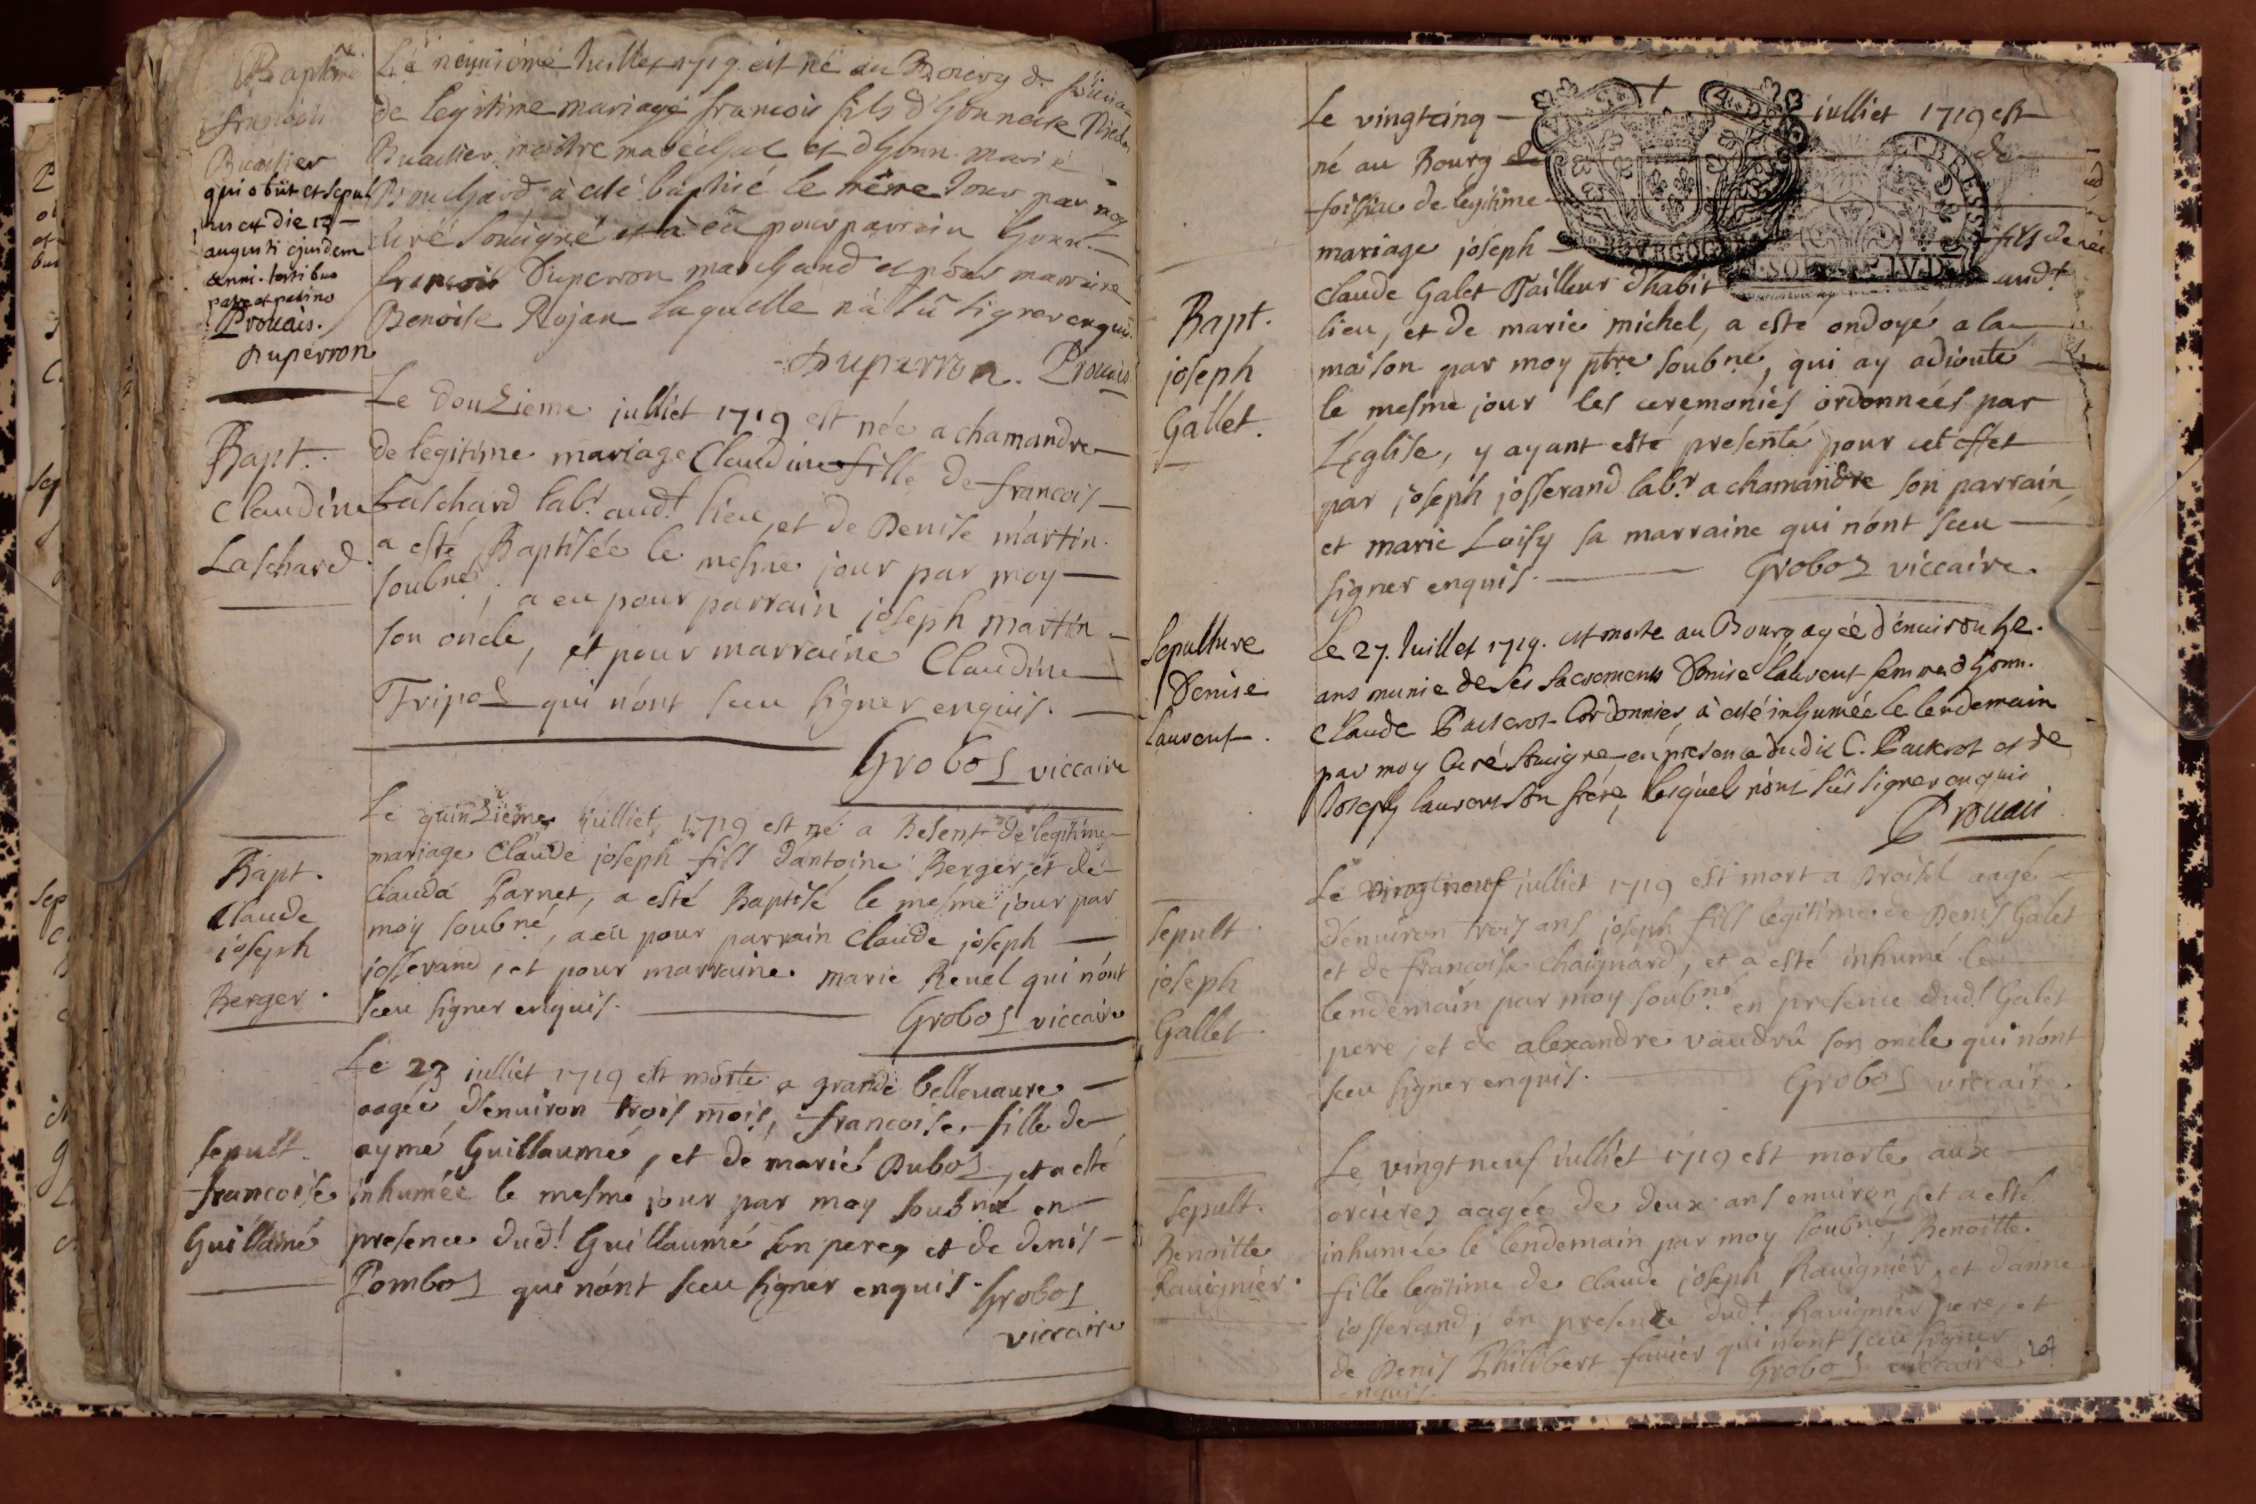 Baptême
françois
Buaillier
qui obiit et sepul
augusti ejusdem
anni. testibus
patre et patrino
Prouais.
Duperron
Le neuuiéme Juillet 1719. est né au Bourg de
de legitime mariage francois fils d'honneste
maitre maréchal et d'honn. marie
à esté baptisé le même Jour par moy
curé Sousigné et à eü pour parrain honn.
francois Duperron marchand et pour marraine
Benoite Rojan laquelle n'à sû signer enquise
Duperron. Prouais
Bapt.
Claudine
Laschard.
Le douzieme julliet 1719 est née a chamandre
de legitime mariage Claudine fille de francois
Laschard lab.r aud.t lieu, et de Denise martin.
a esté Baptisée le mesme jour par moy
soub.né, a eu pour parrain joseph martin
son oncle, et pour marraine Claudine
Tripoz qui n'ont sceu signer enquis.
Groboz viccaire
Bapt.
Claude
joseph
Berger.
Le quinzieme julliet 1719 est né a Besent de legitime
mariage Claude joseph fils d'antoine Berger, et de
clauda Parnet, a esté Baptisé le mesme jour par
moy soubné, a eu pour parrain Claude joseph
josserand, et pour marraine marie Reuel qui n'ont
sceu signer enquis.
Groboz viccaire
sepult.
francoise
Guillaume
Le 23 julliet 1719 est morte a grande bellevaure
aagée d'enuiron trois mois, francoise fille de
aymé Guillaume, et de marie Duboz, et a esté
inhumée le mesme jour par moy soubné en
presence dud.t Guillaume son pere, et de denis
Pomboz qui n'ont sceu signer enquis. Groboz
viccaire
Bapt.
joseph
Gallet.
Le vingtcinq julliet 1719 est
né au Bourg de
foissia de legitime
mariage joseph fils de
claude Galet Tailleur d'habit aud.t
lieu, et de marie michel, a esté ondoyé a la
maison par moy ptre soub.né, qui ay adiouté
le mesme jour les ceremonies ordonnées par
L'église, y ayant esté presenté pour cet effet
par joseph josserand lab.r a chamandre son parrain
et marie Loisy sa marraine qui n'ont sceu
signer enquis. Groboz viccaire.
sepulture
Denise
laurent.
Le 27. Juillet 1719. est morte au Bourg agée d'enuiron
ans munie de ses sacrements Denise laurent femme d'honn.
Claude Cordonnier, à esté inhumée le lendemain
par moy Curé sousigné en présence dudit C. et de
Joseph laurent son frère, lesquels n'ont sû signer enquis
Prouais
sepult.
joseph
Gallet.
Le vingtneuf julliet 1719 est mort a Broissel aagé
d'enuiron trois ans, joseph fils legitime de Denis Galet
et de francoise chaignard, et a esté inhumé le
lendemain par moy soub.né en presence dud.t Galet
pere, et de alexandre vaudrû son oncle qui n'ont
sceu signer enquis. Groboz viccaire.
sepult.
Benoitte
Rauignier.
Le vingt neuf julliet 1719 est morte aux
orcieres aagée de deux ans enuiron, et a esté
inhumée le lendemain par moy soub.né, Benoitte
fille legitime de claude joseph Rauignier, et d'anne
josserand, en presence dud.t Rauignier pere, et
de Denis Philibert fauier qui n'ont sceu signer
enquis. Groboz viccaire